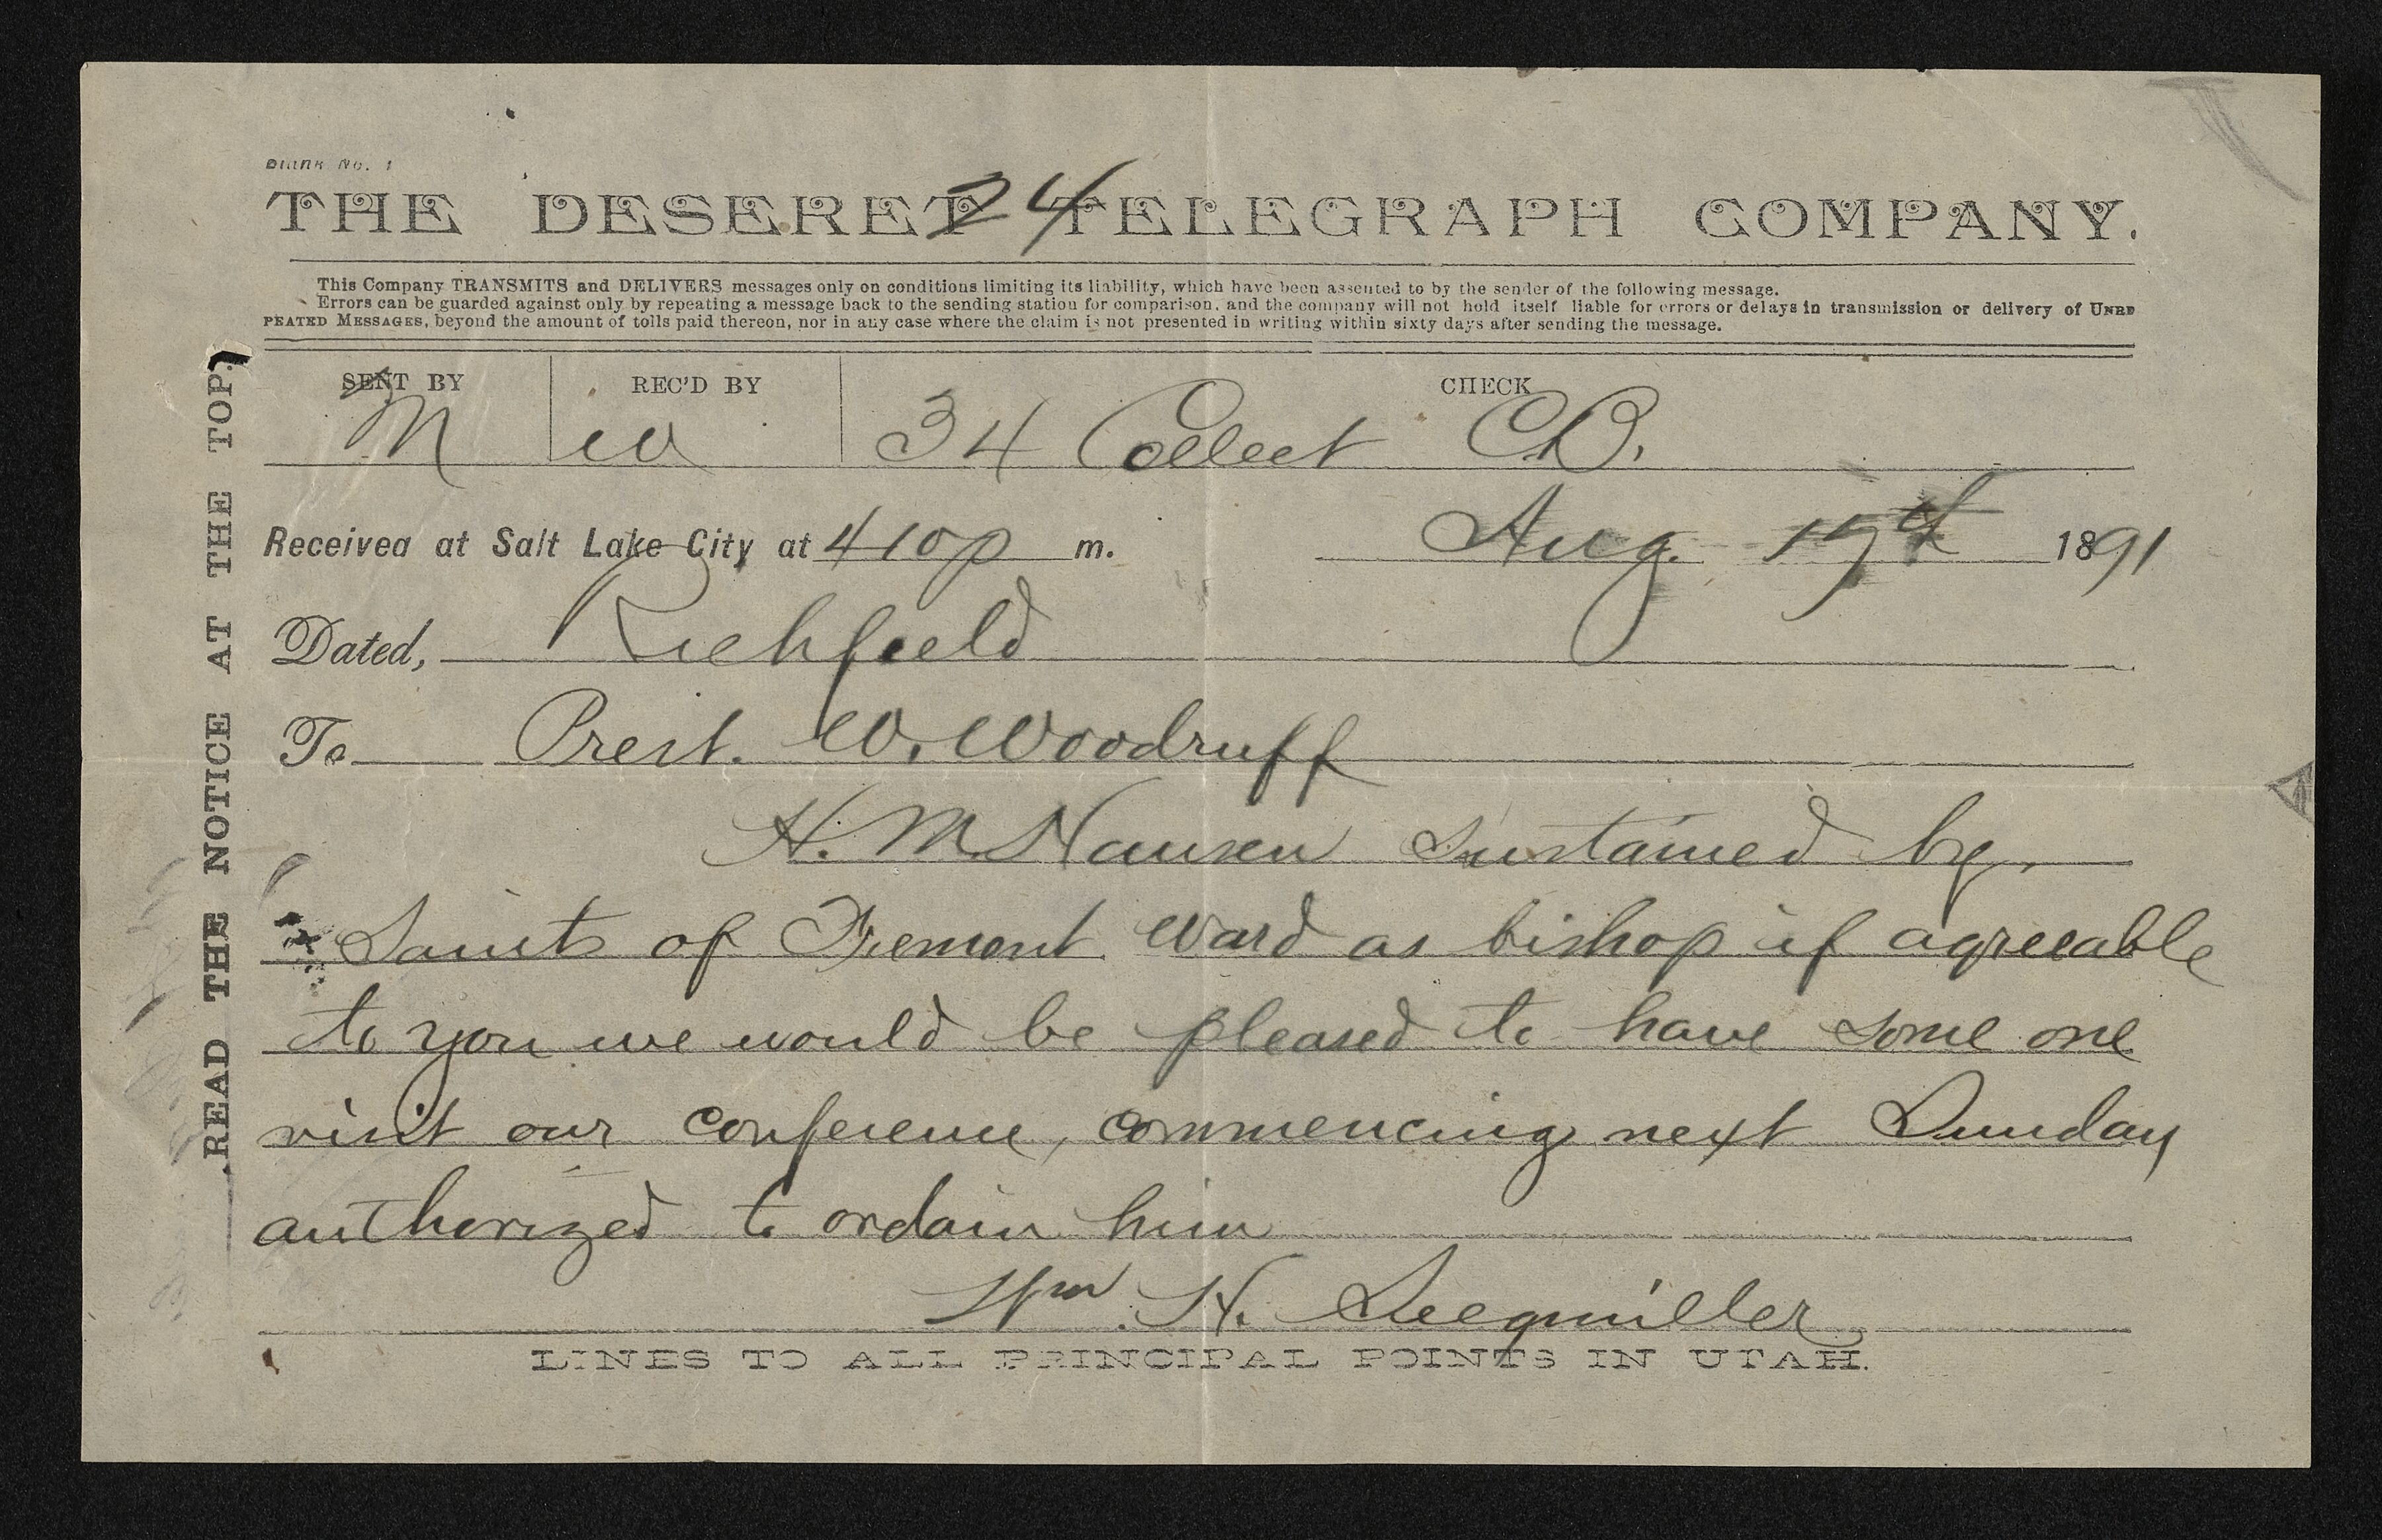 Blank No. 1
24
THE DESERET TELEGRAPH COMPANY.
This Company TRANSMITS and DELIVERS messages only on conditions limiting its liability, which have been assented to by the sender of the following message.
Errors can be guarded against only by repeating a message back to the sending station for comparison, and the company will not hold itself liable for errors or delays in transmission or delivery of UNRE
PEATED MESSAGES, beyond the amount of tolls paid thereon, nor in any case where the claim is not presented in writing within sixty days after sending the message.
READ THE NOTICE AT THE TOP.
SENT BY REC'D BY CHECK
34 Collect
Received at Salt Lake City at 410 p m. Aug. 1891
Dated, Richfield
To Prest. W. Woodruff
H. M. Hansen sustained by
Saints of Fremont Ward as bishop if agreeable
to you we would be pleased to have some one
visit our conference, commencing next Sunday
authorized to ordain him
Wm. H. Seegmiller
LINES TO ALL PRINCIPAL POINTS IN UTAH.